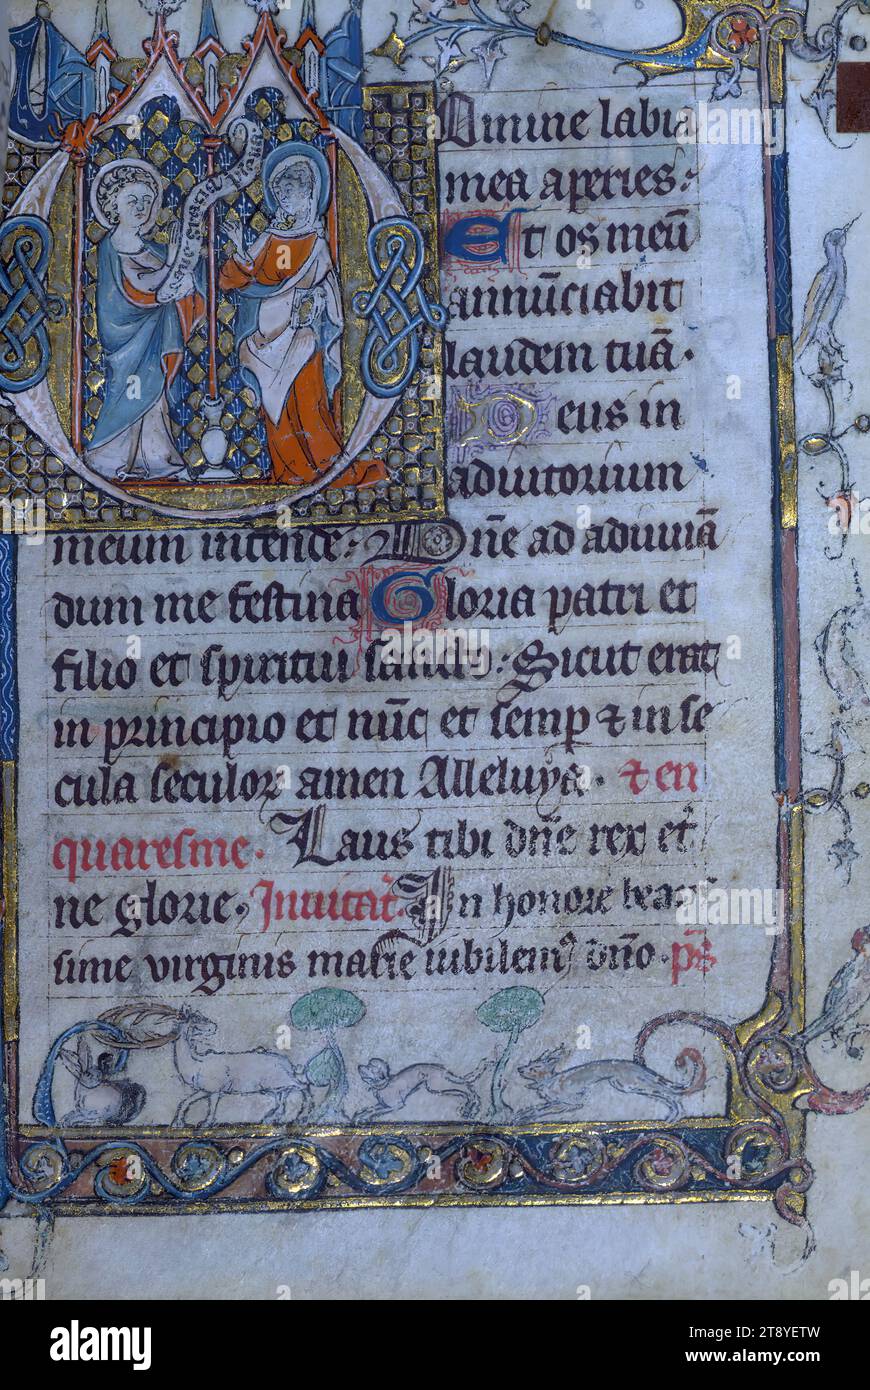 Domine labia
mea aperies:
Et os meū
annūciabit
laudem tuā.
Deus in
adiutorium
meum intende: Dn̄e ad adiuuā
dum me festina Gloria patri et
filio et spiritui sancto: Sicut erat
in principio et nūc et semꝑ ⁊ in se
cula seculoꝝ amen Alleluya. ⁊ en
quaresme. Laus tibi dn̄e rex et̾
ne glorie. Inuitat̾. In honore beatis
sime virginis marie iubilemꝰ dn̄o. p̄s
alamy
Image ID: 2T8YETW
www.alamy.com